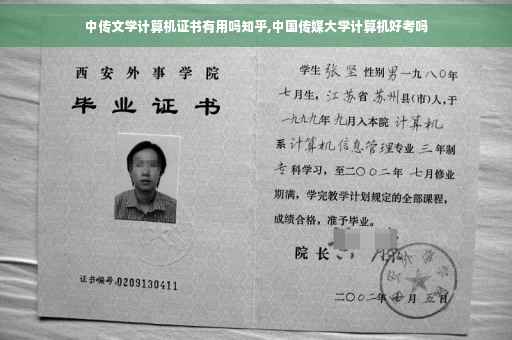 中传文学计算机证书有用吗知乎,中国传媒大学计算机好考吗
西安外事学院
毕业证书
证书编号:0209130411
学生 张坚 性别 男 一九八〇年
七月生, 江苏省 苏州县(市)人, 于
一九九九年 九月入本院 计算机
系 计算机信息管理专业 三 年制
专 科学习, 至二〇〇二年 七月修业
期满, 学完教学计划规定的全部课程,
成绩合格, 准予毕业。
院长
二〇〇二年 月 五日